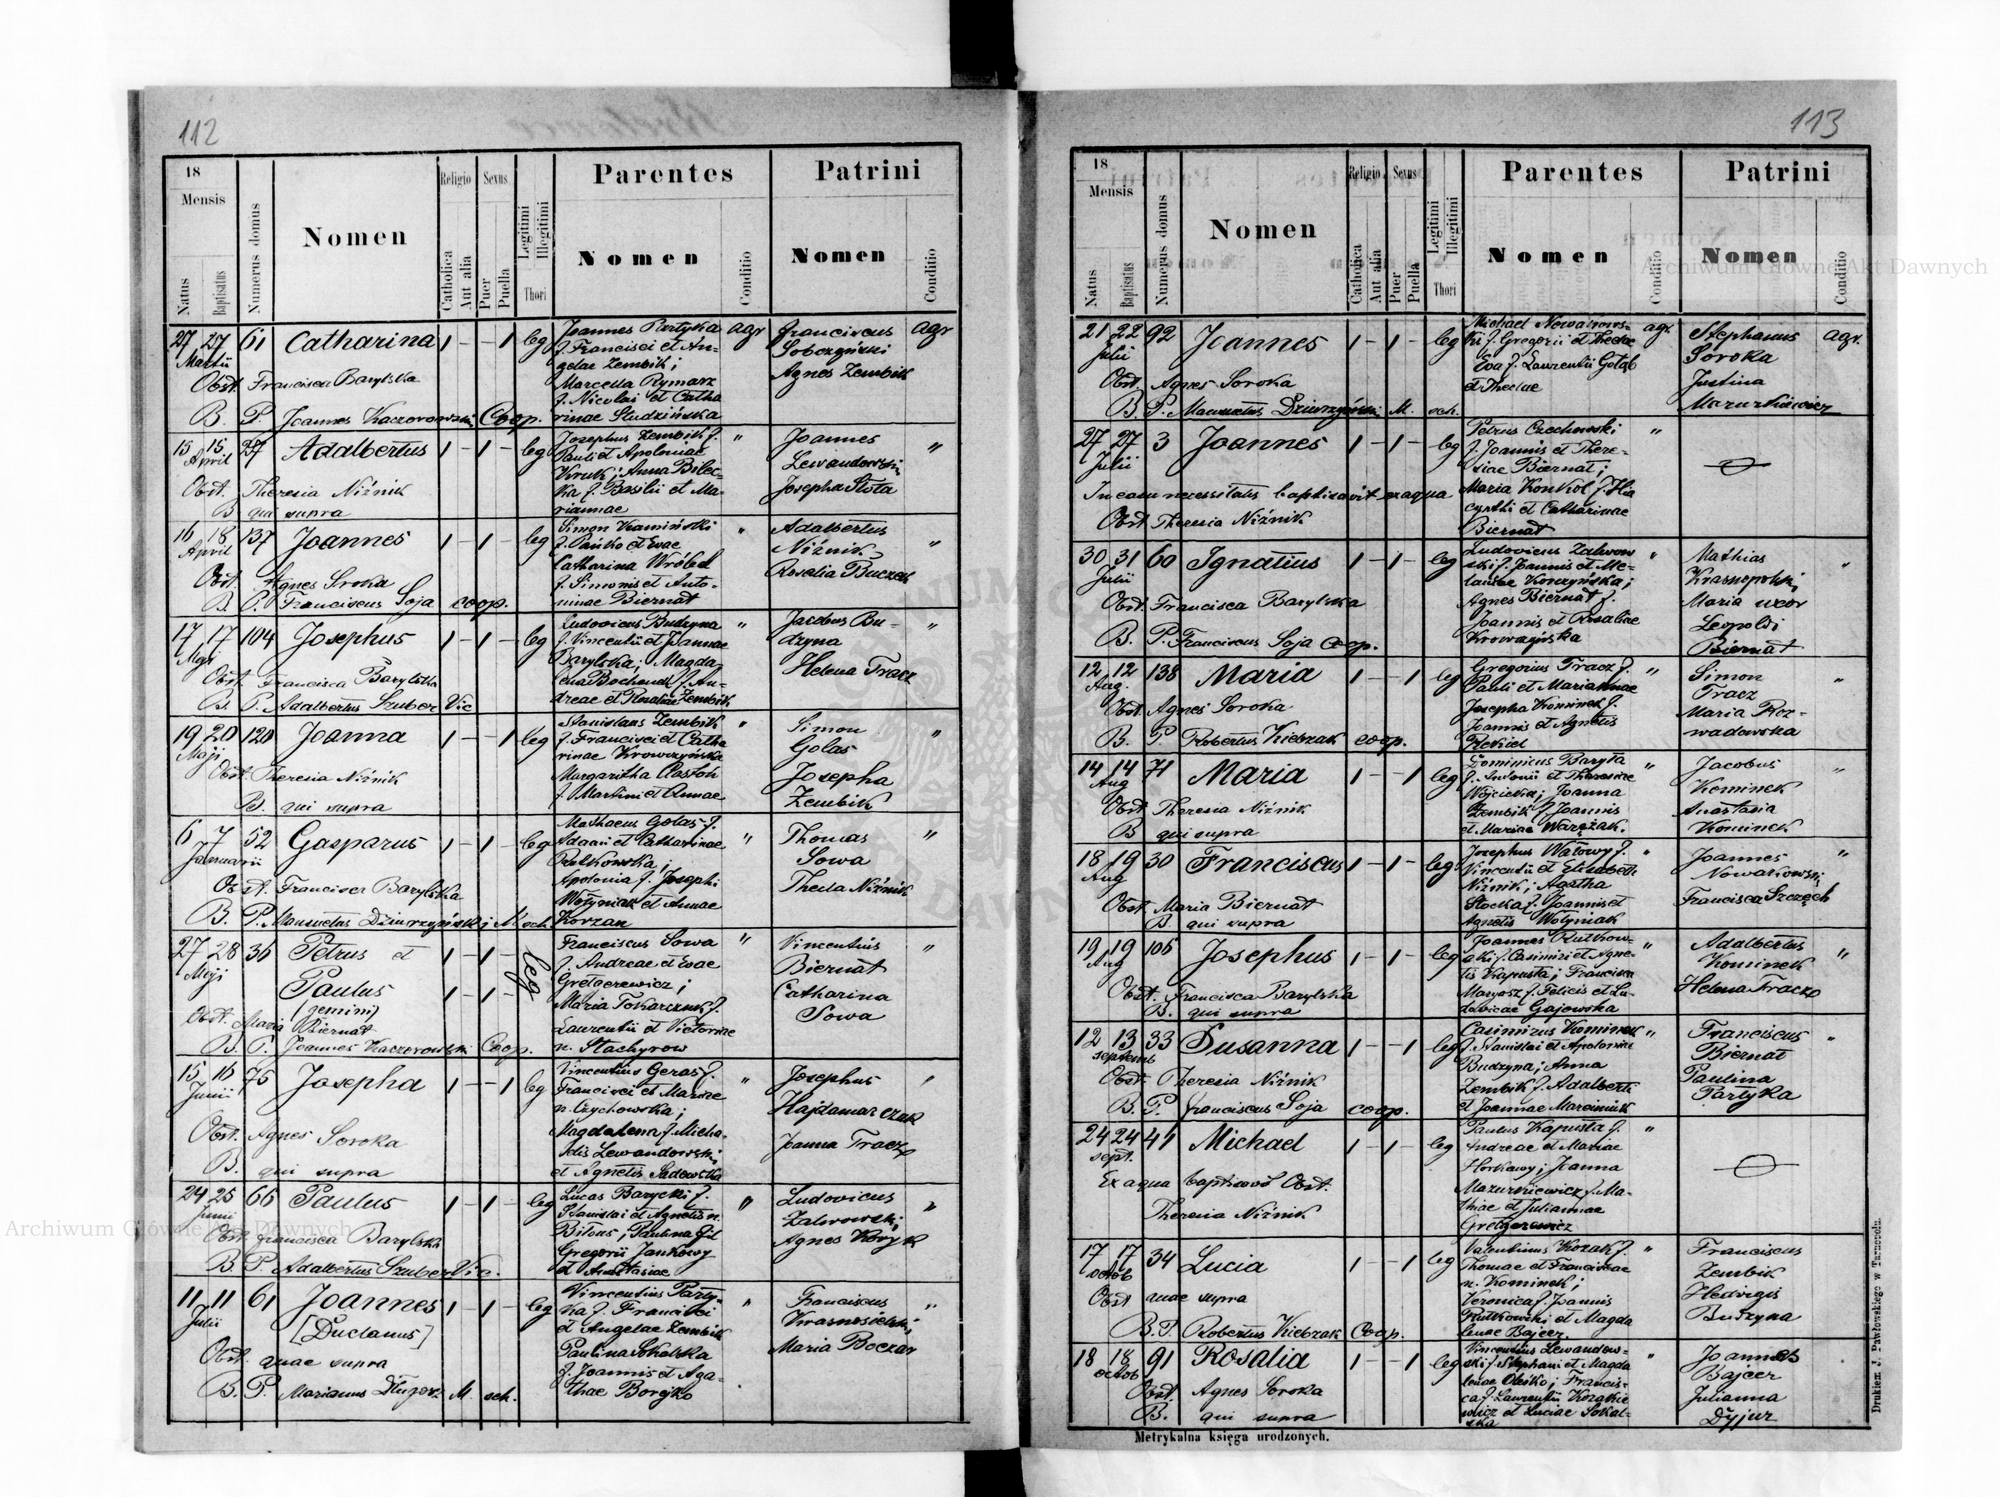 112
18
Mensis
Natus
Baptisatus
Numerus domus
Nomen
Religio
Catholica
Aut alia
Sexus
Puer
Puella
Legitimi
Illegitimi
Thori
Parentes
Nomen
Conditio
Patrini
Nomen
Conditio
27 27 61 Catharina 1 – – 1 leg
Martii
Obst. Francisca Barylska
B. P. Joannes Kaczorowski Coop.
Joannes Partyka agr
f. Francisci et An-
gelae Zembik;
Marcella Rymarz
f. Nicolai et Catha
rinae Studzińska
Franciscus agr
Sobczyński
Agnes Zembik
15 15 37 Adalbertus 1 – 1 – leg
April
Obst. Theresia Niżnik
B. qui supra
Josephus Zembik f. "
Pauli et Apoloniae
Kruk; Anna Bilec-
ka f. Basilii et Ma-
riannae
Joannes "
Lewandowski,
Josepha Słota
16 18 137 Joannes 1 – 1 – leg
April
Obst. Agnes Sroka
B. P. Franciscus Soja coop.
Simon Kamiński "
f. Pańko et Evae
Catharina Wróbel
f. Simonis et Anto-
ninae Biernat
Adalbertus
Niżnik "
Rosalia Buczek
17 17 104 Josephus 1 – 1 – leg
Maji
Obst. Francisca Barylska
B. P. Adalbertus Szuber Vic
Ludovicus Budzyna "
f. Vincentii et Joannae
Barylska; Magda
lena Bochenek f. An-
dreae et Rosaliae Zembik
Jacobus Bu- "
dzyna
Helena Tracz
19 20 120 Joanna 1 – – 1 leg
Maji
Obst. Theresia Niżnik
B. qui supra
Stanislaus Zembik "
f. Francisci et Catha
rinae Krowczyńska
Margaritha
f. Martini et Annae
Simon
Golas "
Josepha
Zembik
6 7 52 Gasparus 1 – 1 – leg
Januarii
Obst. Francisca Barylska
B. P. Mansuetus Dziurzyński M. sch.
Mathaeus Golas f. "
Adami et Catharinae
Rutkowska;
Apolonia f. Josephi
Wołyniak et Annae
Korzan
Thomas "
Sowa
Thecla Niżnik
27 28 36 Petrus et 1 – 1 – leg
Maji Paulus 1 – 1 –
(gemini)
Obst. Maria Biernat
B. P. Joannes Kaczorowski Coop.
Franciscus Sowa "
f. Andreae et Evae
Gretgerewicz;
Maria Tokarczuk f.
Laurentii et Victoriae
n. Stachyrow
Vincentius "
Biernat
Catharina
Sowa
15 16 75 Josepha 1 – – 1 leg
Junii
Obst. Agnes Soroka
B. qui supra
Vincentius Geras f. "
Francisci et Mariae
n. Czychowska;
Magdalena f. Micha-
elis Lewandowski
et Agnetis Sadowska
Josephus "
Hajdamarczuk
Joanna Tracz
24 25 66 Paulus 1 – 1 – leg
Junii
Obst. Francisca Barylska
B. P. Adalbertus Szuber Vic.
Lucas Barycki f. "
Stanislai et Agnetis n.
Bitous; Paulina fil
Gregorii Jankowy
et Anastasiae
Ludovicus "
Zalwowski,
Agnes Koryk
11 11 61 Joannes 1 – 1 – leg
Julii [Duclanus]
Obst. quae supra
B. P. Marianus M. sch.
Vincentius Party- "
ka f. Francisci
et Angelae Zembik
Paulina Sokalska
f. Joannis et Aga-
thae Borejko
Franciscus "
Krasnosielski,
Maria Boczar
113
18
Mensis
Natus
Baptisatus
Numerus domus
Nomen
Religio
Catholica
Aut alia
Sexus
Puer
Puella
Legitimi
Illegitimi
Thori
Parentes
Nomen
Conditio
Patrini
Nomen
Conditio
21 22 92 Joannes 1 – 1 – leg
Julii
Obst. Agnes Soroka
B. P. Mansuetus Dziurzyński M. sch.
Michael Nowakows- agr.
ki f. Gregorii et Theclae
Eva f. Laurentii Gołąb
et Theclae
Stephanus agr.
Soroka
Justina
Mazurkiewicz
27 27 3 Joannes 1 – 1 – leg
Julii
In casu necessitatis baptisavit ex aqua
Obst. Theresia Niżnik
Petrus Czechowski "
f. Joannis et There-
siae Biernat;
Maria Konkol f. Hia
cynthi et Catharinae
Biernat
30 31 60 Ignatius 1 – 1 – leg
Julii
Obst. Francisca Barylska
B. P. Franciscus Soja coop.
Ludovicus Zalwow "
ski f. Joannis et Me-
laniae Korczyńska;
Agnes Biernat f.
Joannis et Rosaliae
Mathias "
Krasnopolski,
Maria uxor
Leopoldi
Biernat
12 12 138 Maria 1 – – 1 leg
Aug.
Obst. Agnes Soroka
B. P. Robertus Kiebzak coop.
Gregorius Tracz f. "
Pauli et Mariannae
Josepha Kominek f.
Joannis et Agnetis
Simon "
Tracz
Maria Roz-
wadowska
14 14 71 Maria 1 – – 1 leg
Aug
Obst. Theresia Niżnik
B qui supra
Dominicus Baryła "
f. Antonii et Theresiae
Wojcicka; Joanna
Zembik f. Joannis
et Mariae Warężak.
Jacobus "
Kominek
Anastasia
Kominek
18 19 30 Franciscus 1 – 1 – leg
Aug
Obst. Maria Biernat
B. qui supra
Josephus Watowy f. "
Vincentii et Elisabeth
Niżnik; Agatha
Słocka f. Joannis et
Agnetis Wołyniak
Joannes "
Nowakowski,
Francisca Szczęch
19 19 106 Josephus 1 – 1 – leg
Aug
Obst. Francisca Barylska
B. qui supra
Joannes Rutkow- "
ski f. Casimiri et Agne-
tis Kapusta; Francisca
Margasz f. Felicis et Lu-
dovicae Gajewska
Adalbertus "
Kominek
Helena Tracz
12 13 33 Susanna 1 – – 1 leg
Septemb
Obst. Theresia Niżnik
B. P. Franciscus Soja coop.
Casimirus Kominek "
f. Stanislai et Apoloniae
Budzyna; Anna
Zembik f. Adalberti
et Joannae Marciniuk
Franciscus "
Biernat
Paulina
Partyka
24 24 41 Michael 1 – 1 – leg
sept.
Ex aqua baptisavit Obst.
Theresia Niżnik
Paulus Kapusta f. "
Andreae et Mariae
Horkawy; Joanna
Mazurkiewicz f. Ma-
thiae et Juliannae
Gretgerewicz
17 17 34 Lucia 1 – – 1 leg
octob
Obst quae supra
B. P. Robertus Kiebzak Coop.
Valentinus Kozak f. "
Thomae et Franciscae
n. Kominek;
Veronica f. Joannis
Rutkowski et Magda
lenae Bajcer.
Franciscus
Zembik
Hedvigis
Budzyna
18 18 91 Rosalia 1 – – 1 leg
octob
Obst Agnes Soroka
B. qui supra
Vincentius Lewandow- "
ski f. Stephani et Magda
lenae Oleśko; Francis-
ca f. Laurentii Kozakie
wicz et Luciae Sokal-
ska
Joannes
Bajcer
Julianna
Dyjur
Metrykalna księga urodzonych.
Drukiem J. Pawłowskiego w Tarnopolu.
Archiwum Główne Akt Dawnych
Archiwum Główne Akt Dawnych